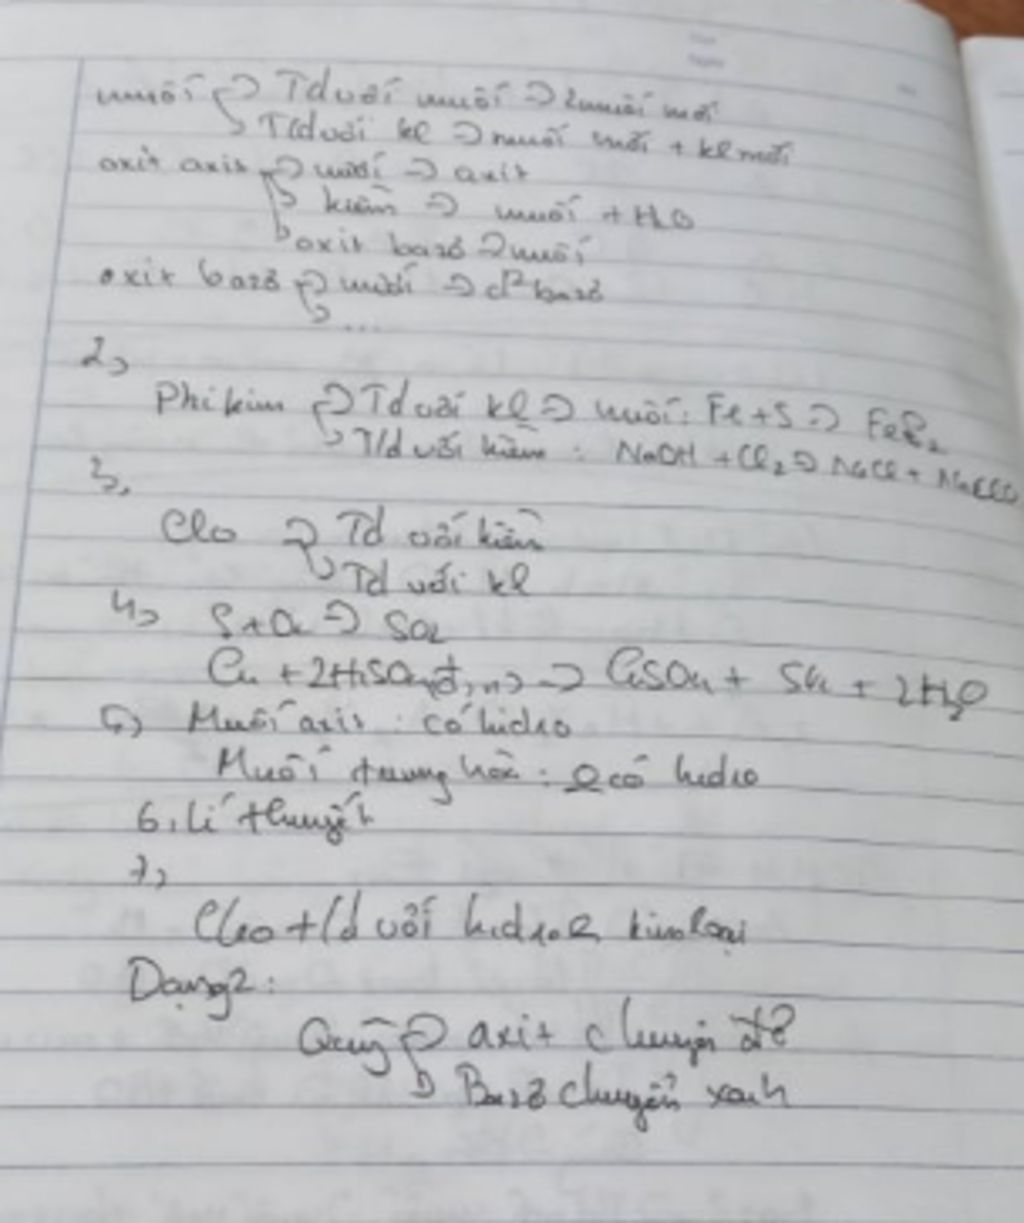 muối → Td với muối → 2 muối mới
T/d với kl → muối mới + kl mới
oxit axit → nước → axit
kiềm → muối + H2O
oxit bazơ → muối
oxit bazơ → nước → d² bazơ
→ ...
2,
Phi kim → Td với kl → muối: Fe + S → FeS2
T/d với kiềm : NaOH + Cl2 → NaCl + NaClO
3.
Clo → Td với kiềm
Td với kl
4, S + O2 → SO2
Cu + 2H2SO4 đ, n → CuSO4 + SO2 + 2H2O
5, Muối axit : có hidro
Muối trung hòa : 0 có hidro
6, Lí thuyết
7,
Clo t/d với kim loại
Dạng 2:
Quỳ → axit chuyển đỏ
Bazơ chuyển xanh